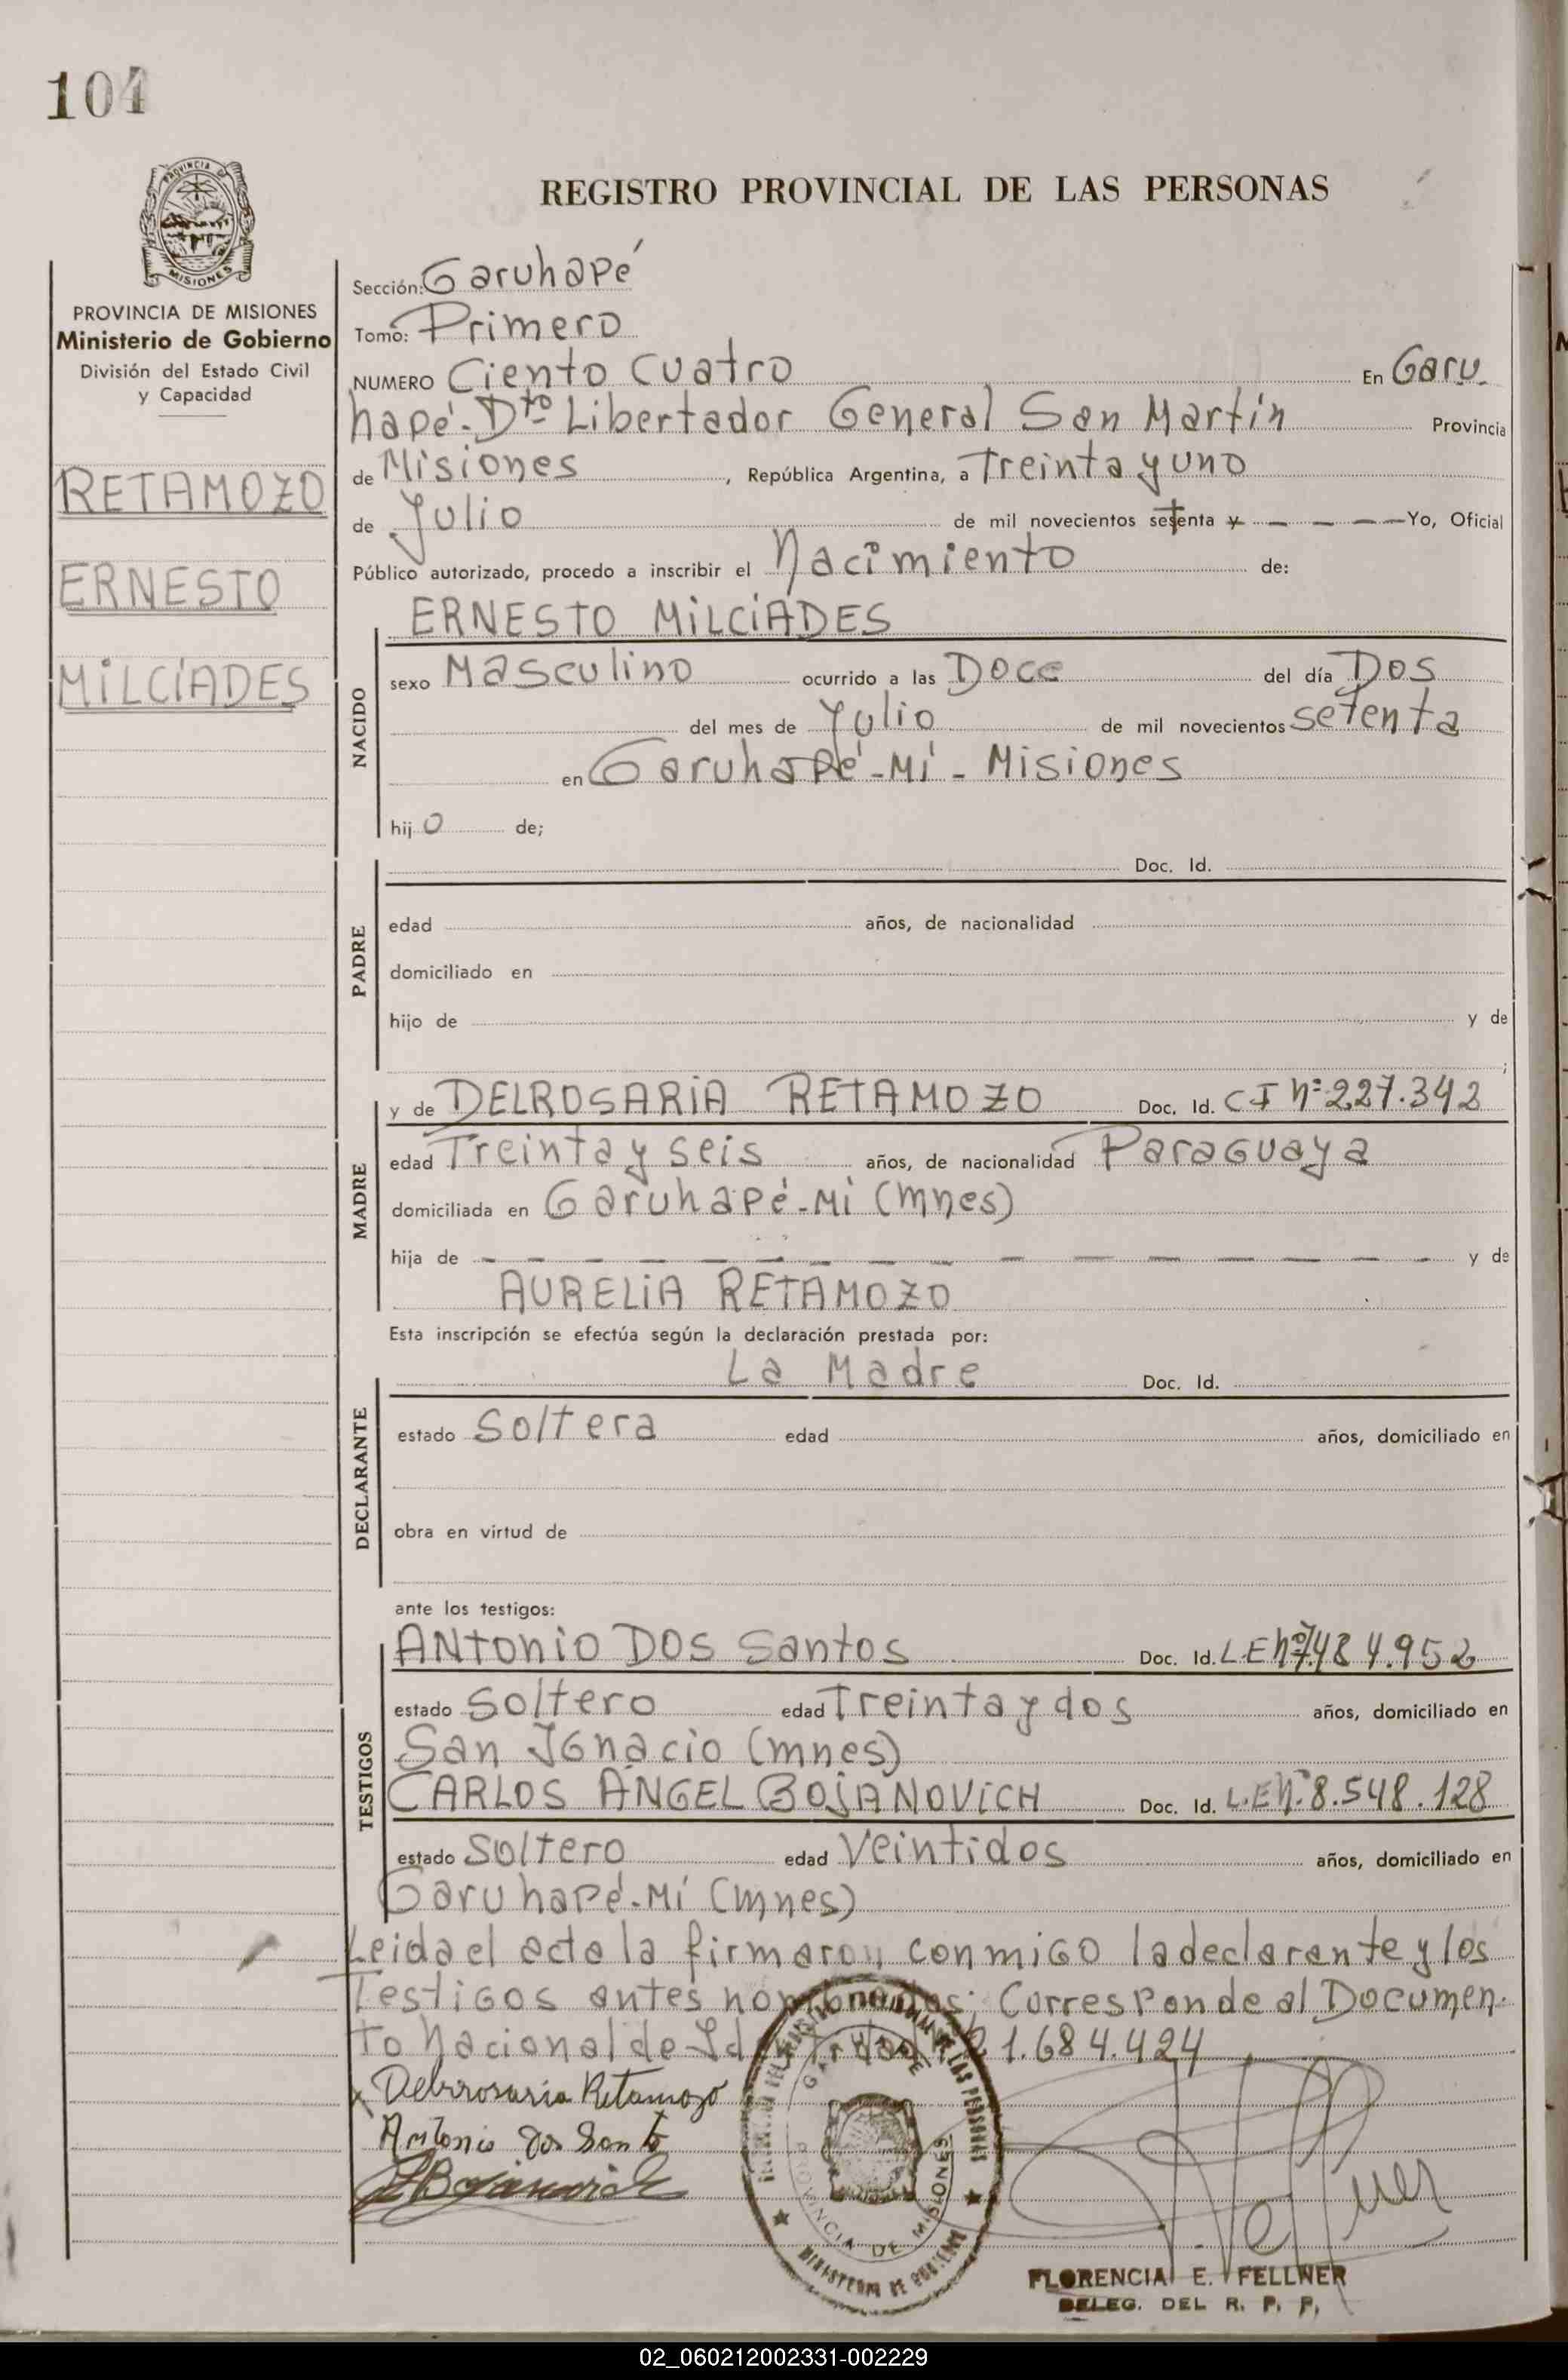 104
REGISTRO PROVINCIAL DE LAS PERSONAS
PROVINCIA DE MISIONES
Ministerio de Gobierno
División del Estado Civil
y Capacidad
RETAMOZO
ERNESTO
MILCÍADES
Sección: Garuhapé
Tomo: Primero
NUMERO Ciento Cuatro En Garu-
hapé-Dto Libertador General San Martín Provincia
de Misiones, República Argentina, a Treinta y uno
de Julio de mil novecientos setenta y — — — Yo, Oficial
Público autorizado, procedo a inscribir el Nacimiento de:
NACIDO
ERNESTO MILCÍADES
sexo Masculino ocurrido a las Doce del día Dos
del mes de Julio de mil novecientos setenta
en Garuhapé-Mí - Misiones
hijo de;
PADRE
Doc. Id.
edad años, de nacionalidad
domiciliado en
hijo de y de
;
MADRE
y de DELROSARIA RETAMOZO Doc. Id. CI Nº 227.342
edad Treinta y seis años, de nacionalidad Paraguaya
domiciliada en Garuhapé-Mí (mnes)
hija de — — — — — — — — — — — y de
AURELIA RETAMOZO
Esta inscripción se efectúa según la declaración prestada por:
DECLARANTE
La Madre Doc. Id.
estado Soltera edad años, domiciliado en
obra en virtud de
ante los testigos:
TESTIGOS
ANTONIO DOS Santos Doc. Id. LE Nº 7.484.952
estado Soltero edad Treinta y dos años, domiciliado en
San Ignacio (mnes)
CARLOS ÁNGEL BOJANOVICH Doc. Id. L.E Nº 8.548.128
estado Soltero edad Veintidos años, domiciliado en
Garuhapé-Mí (mnes)
Leida el acta la firmaron conmigo la declarante y los
Testigos antes nombrados; Corresponde al Documen-
to Nacional de Identidad 21.684.424
Delrrosaria Retamozo
Antonio Dos Santo
Bojanovich
GARUHAPE
PROVINCIA DE MISIONES
MINISTERIO DE GOBIERNO
Fellner
FLORENCIA E. FELLNER
DELEG. DEL R. P. P.
02_060212002331-002229